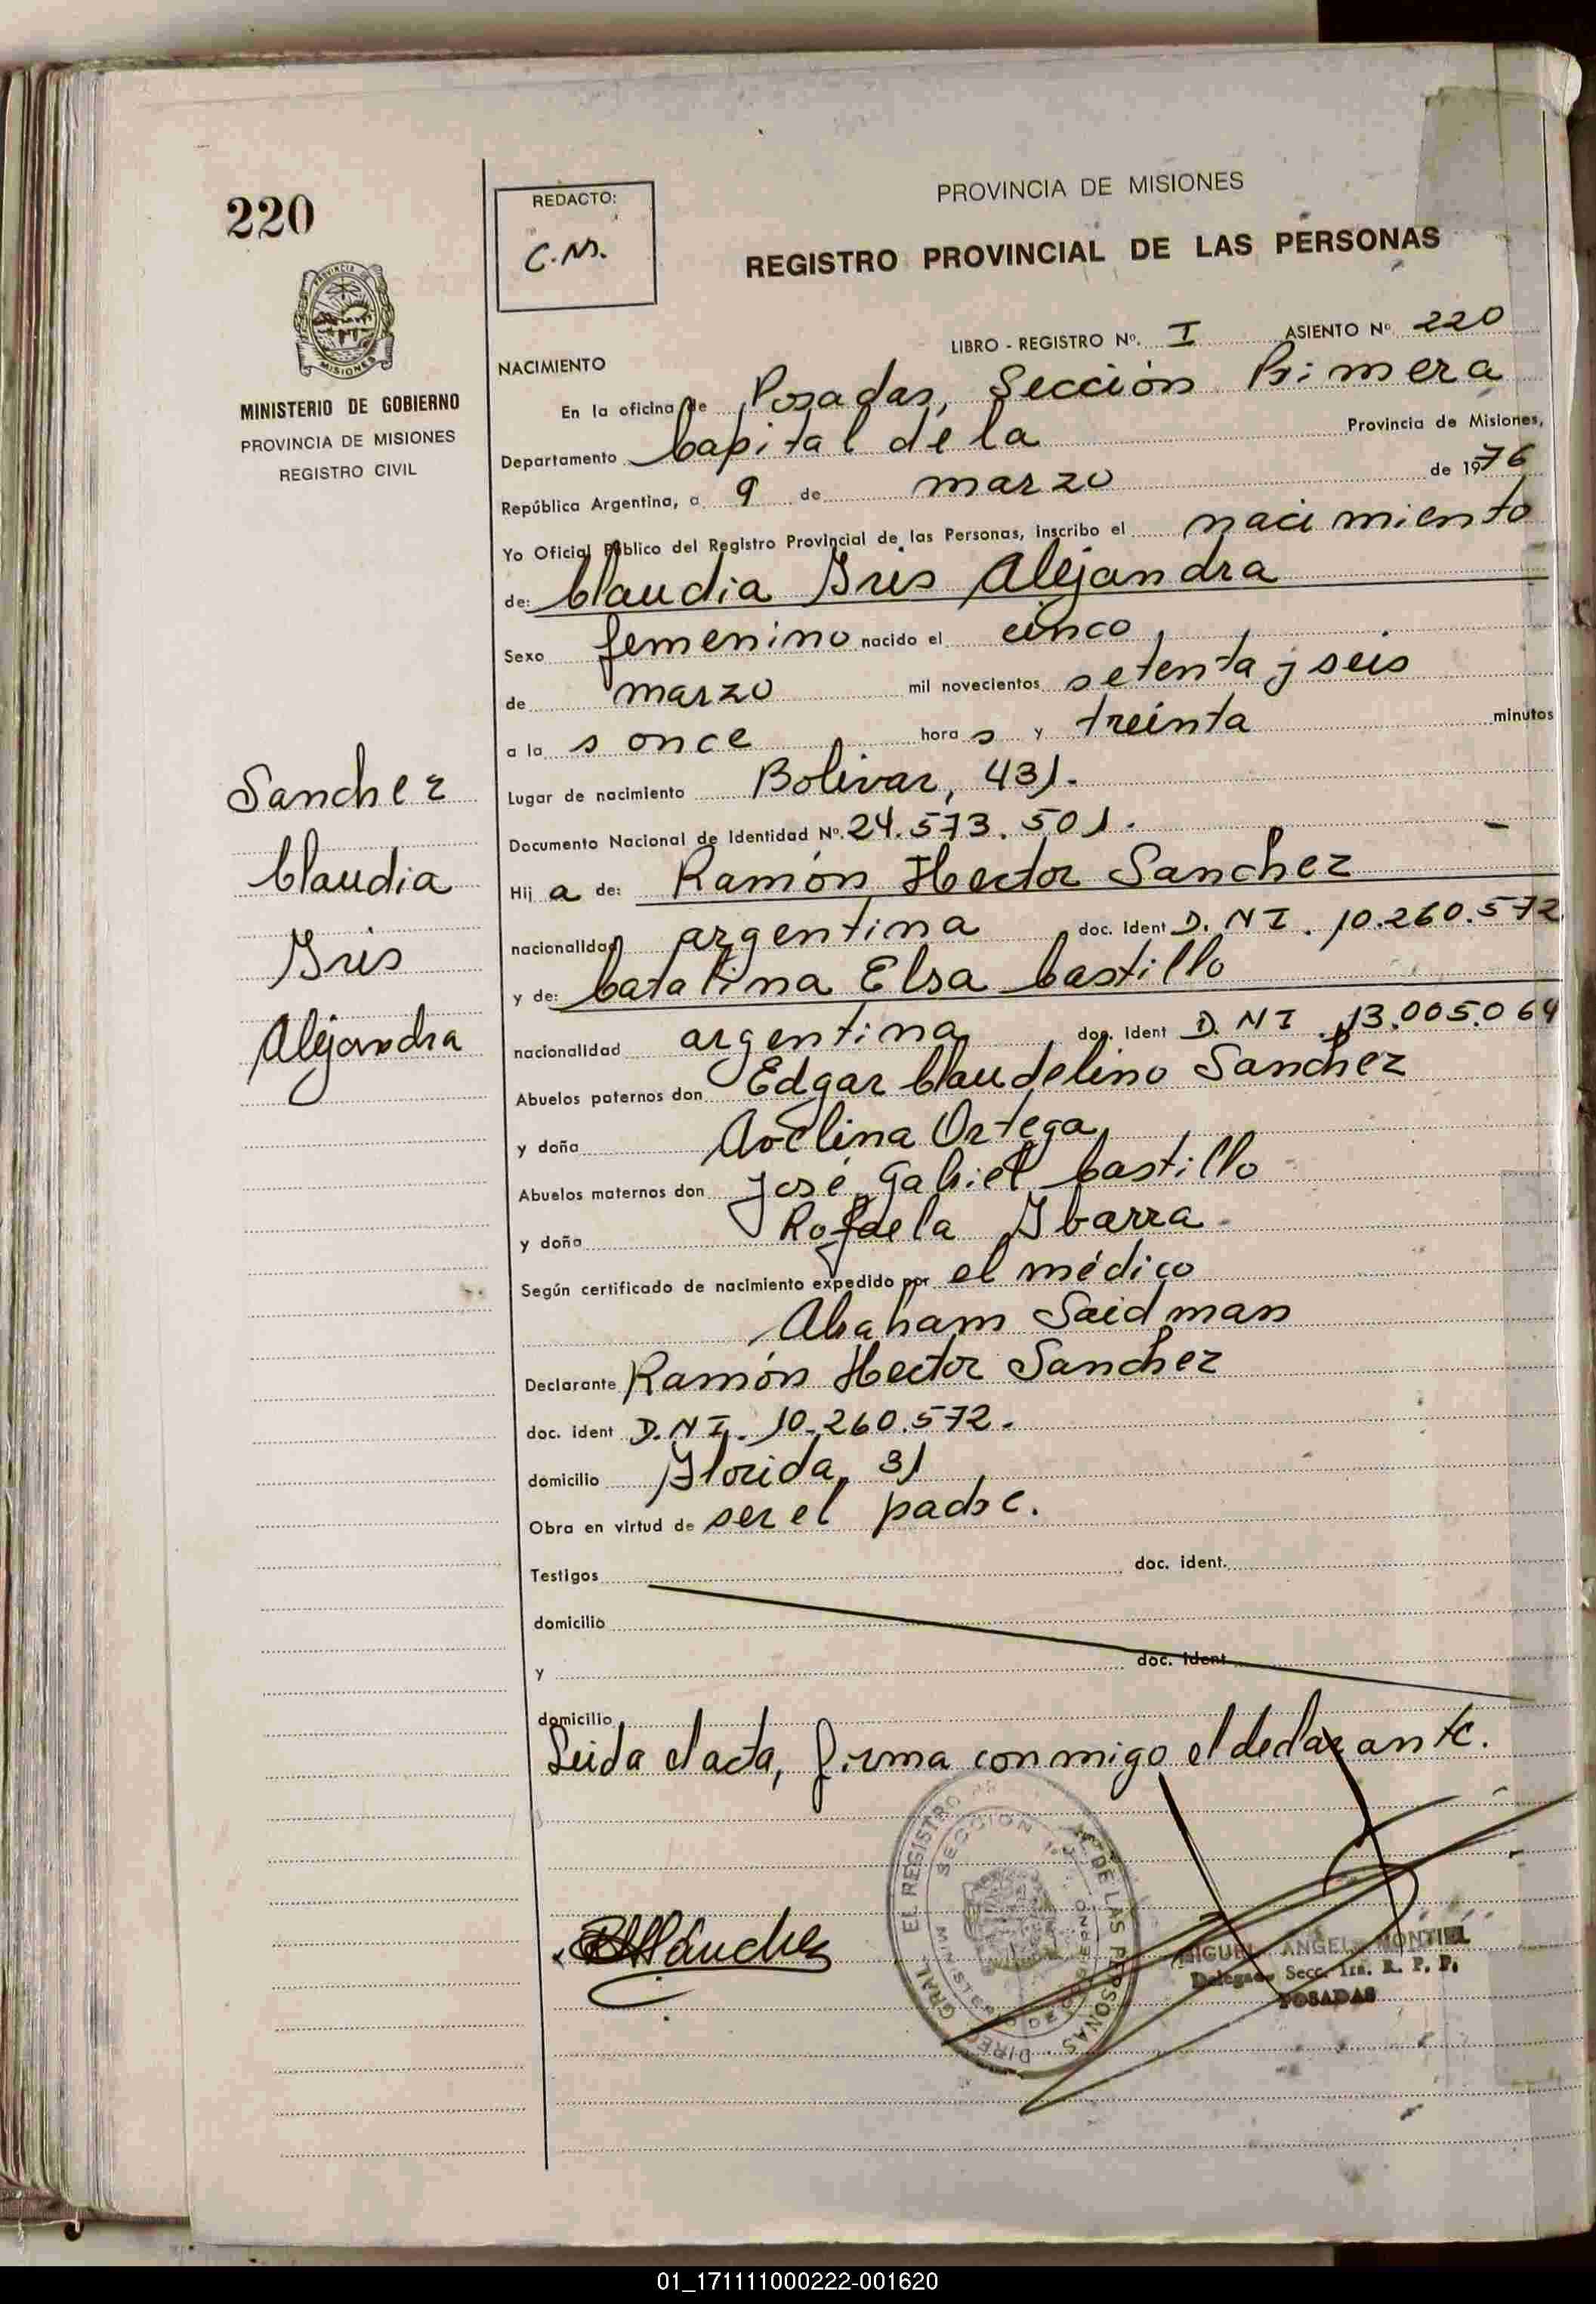 220
REDACTO:
C.M.
PROVINCIA DE MISIONES
REGISTRO PROVINCIAL DE LAS PERSONAS
PROVINCIA DE
MISIONES
MINISTERIO DE GOBIERNO
PROVINCIA DE MISIONES
REGISTRO CIVIL
LIBRO - REGISTRO Nº. I ASIENTO Nº 220
NACIMIENTO
En la oficina de Posadas, Sección Primera
Departamento Capital de la Provincia de Misiones,
República Argentina, a 9 de marzo de 1976
Yo Oficial Público del Registro Provincial de las Personas, inscribo el nacimiento
de: Claudia Iris Alejandra
Sexo femenino nacido el cinco
de marzo mil novecientos setenta y seis
a la s once hora s y treinta minutos
Lugar de nacimiento Bolivar, 431.-
Documento Nacional de Identidad Nº. 24.573.501.-
Hij a de: Ramón Hector Sanchez
nacionalidad argentina doc. Ident D.N I. 10.260.572
y de: Catalina Elsa Castillo
nacionalidad argentina doc. Ident D.N I. 13.005.064
Abuelos paternos don Edgar Claudelino Sanchez
y doña Avelina Ortega
Abuelos maternos don José Gabriel Castillo
y doña Rafaela Ibarra-
Según certificado de nacimiento expedido por el médico
Abraham Saidman
Declarante Ramón Hector Sanchez
doc. ident D.N I. 10.260.572.-
domicilio Florida, 31
Obra en virtud de ser el padre.
Testigos doc. ident.
domicilio
y doc. ident
domicilio
Leida el acta, firma conmigo el declarante.
Sanchez
Claudia
Iris
Alejandra
RHSánchez
MIGUEL ANGEL MONTIEL
Delegado Secc. 1ra. R. P. P.
POSADAS
01_171111000222-001620